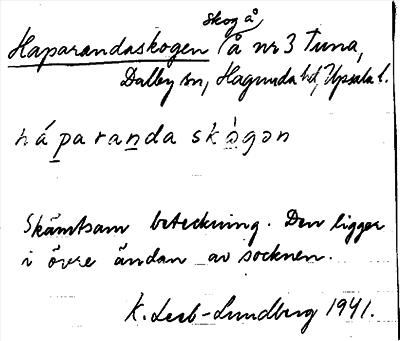 Haparandaskogen skog å
(å nr 3 Tuna,
Dalby sn, Hagunda hd, Upsala l.
háparanda skògən
Skämtsam beteckning. Den ligger
i övre ändan av socknen.
K. Leeb-Lundberg 1941.